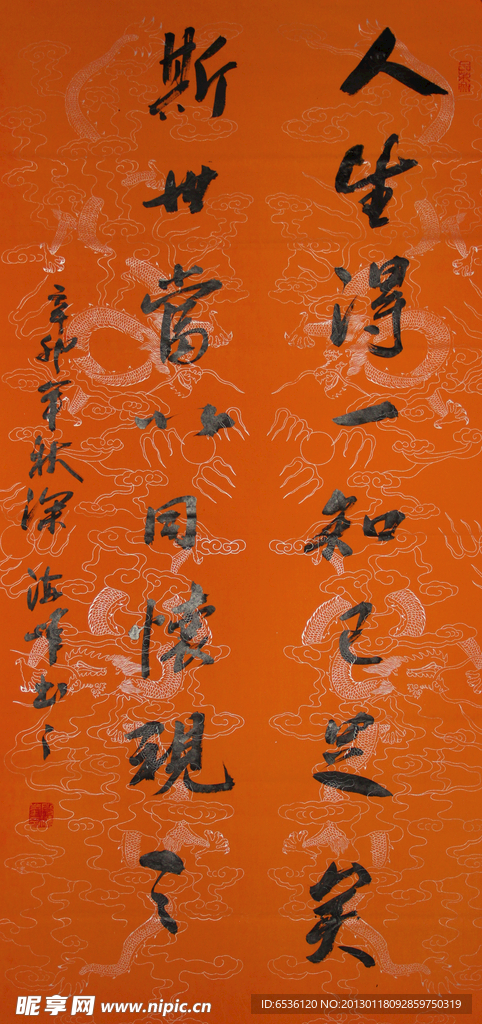 人生得一知己足矣
斯世當以同懷視之
辛卯年秋深
昵享网 www.nipic.cn
ID:6536120 NO:20130118092859750319